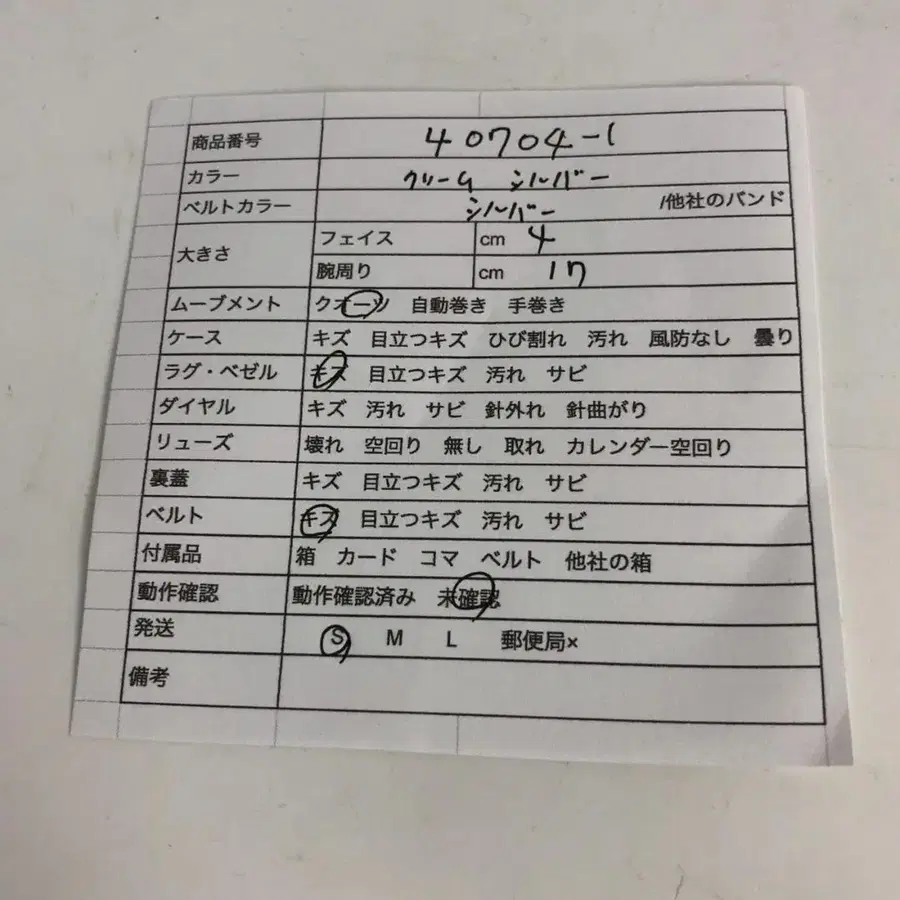 商品番号 40704-1
カラー クリーム シルバー
ベルトカラー シルバー /他社のバンド
大きさ フェイス cm 4
腕周り cm 17
ムーブメント クオーツ 自動巻き 手巻き
ケース キズ 目立つキズ ひび割れ 汚れ 風防なし 曇り
ラグ・ベゼル キズ 目立つキズ 汚れ サビ
ダイヤル キズ 汚れ サビ 針外れ 針曲がり
リューズ 壊れ 空回り 無し 取れ カレンダー空回り
裏蓋 キズ 目立つキズ 汚れ サビ
ベルト キズ 目立つキズ 汚れ サビ
付属品 箱 カード コマ ベルト 他社の箱
動作確認 動作確認済み 未確認
発送 S M L 郵便局×
備考